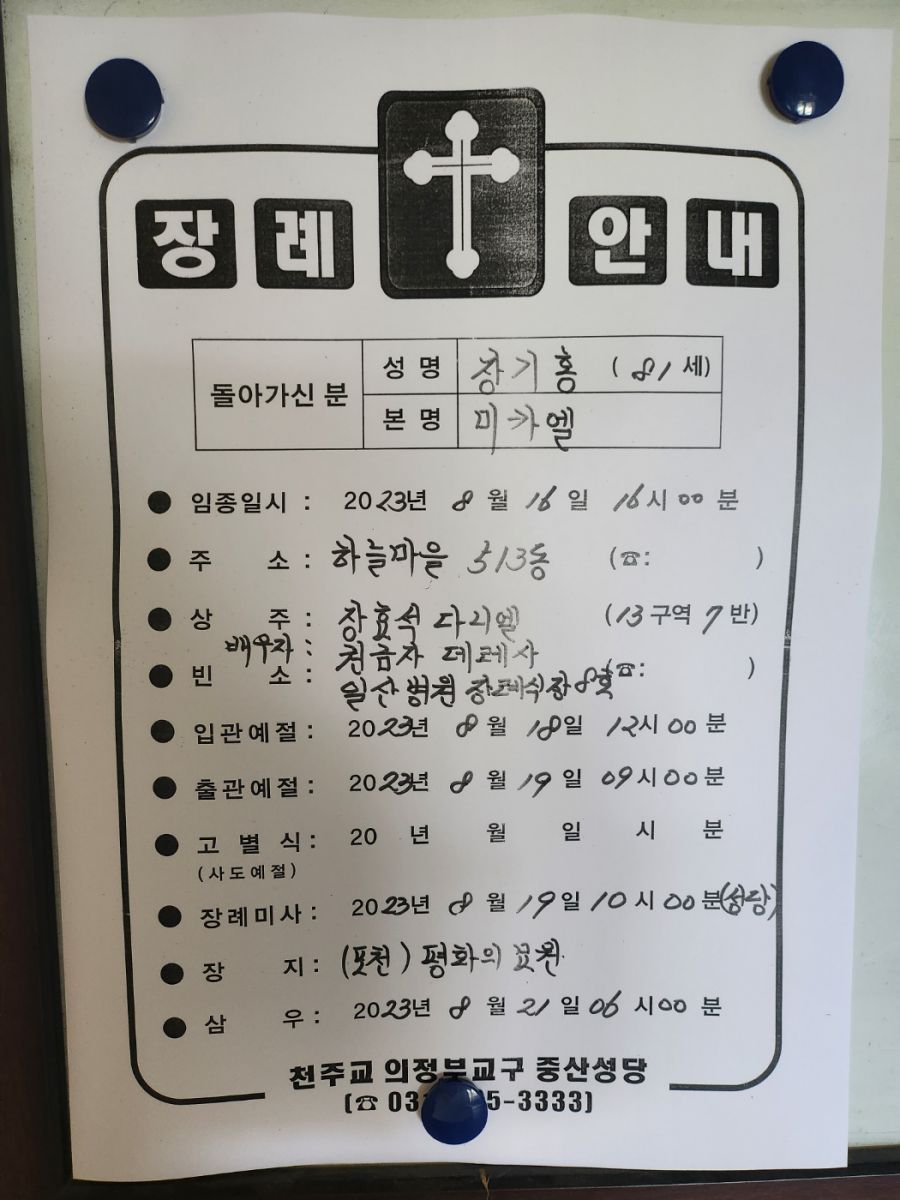 장례 안내
돌아가신 분
성 명 장기홍 ( 81 세)
본 명 미카엘
● 임종일시 : 2023년 8 월 16 일 16시 00 분
● 주 소 : 하늘마을 513동 (☎: )
● 상 주 : 장효석 다니엘 (13 구역 7 반)
배우자 : 권금자 데레사
● 빈 소 : 일산병원 장례식장 8호 ☎: )
● 입관예절 : 2023년 8 월 18일 12시 00 분
● 출관예절 : 2023년 8 월 19 일 09시 00분
● 고 별 식 : 20 년 월 일 시 분
(사도예절)
● 장례미사 : 2023년 8 월 19일 10 시 00 분(성당)
● 장 지 : (포천) 평화의 묘원
● 삼 우 : 2023년 8 월 21 일 06 시00 분
천주교 의정부교구 중산성당
(☎ 03 5-3333)